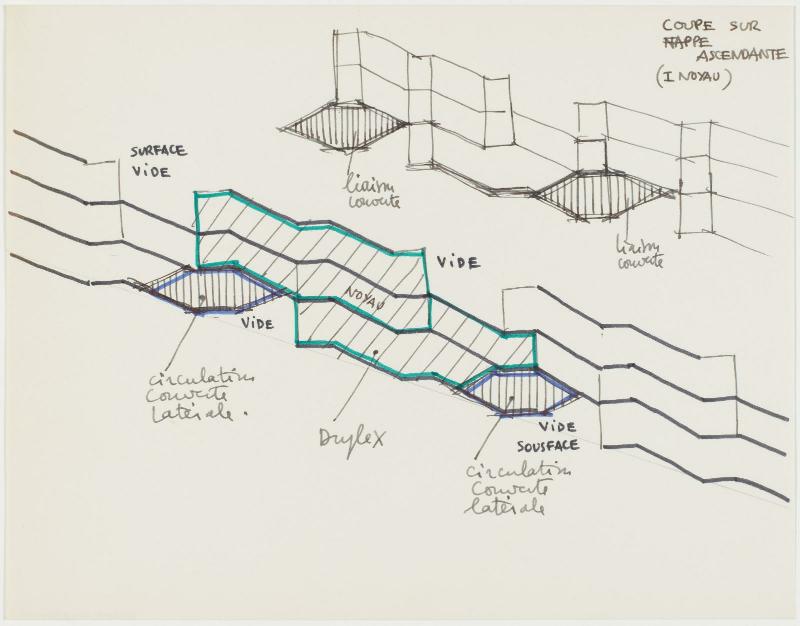 COUPE SUR
NAPPE
ASCENDANTE
(I NOYAU)
SURFACE
VIDE
liaison
couverte
liaison
couverte
VIDE
NOYAU
VIDE
circulation
Couverte
Latérale.
Duplex
VIDE
SOUSFACE
Circulation
Couverte
latérale